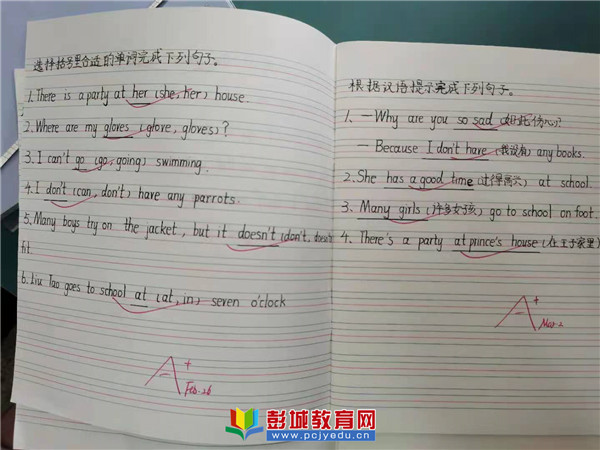 选择括号里合适的单词完成下列句子。
1. There is a party at her (she, her) house.
2. Where are my gloves (glove, gloves)?
3. I can't go (go, going) swimming.
4. I don't (can, don't) have any parrots.
5. Many boys try on the jacket, but it doesn't (don't, doesn't
fit.
6. Liu Tao goes to school at (at, in) seven o'clock
A+
Feb. 26
根据汉语提示完成下列句子。
1. — Why are you so sad (如此伤心)?
— Because I don't have (我没有) any books.
2. She has a good time (过得高兴) at school.
3. Many girls (许多女孩) go to school on foot.
4. There's a party at prince's house (在王子家里)
A+
Mar. 2
彭城教育网
www.pcjyedu.cn